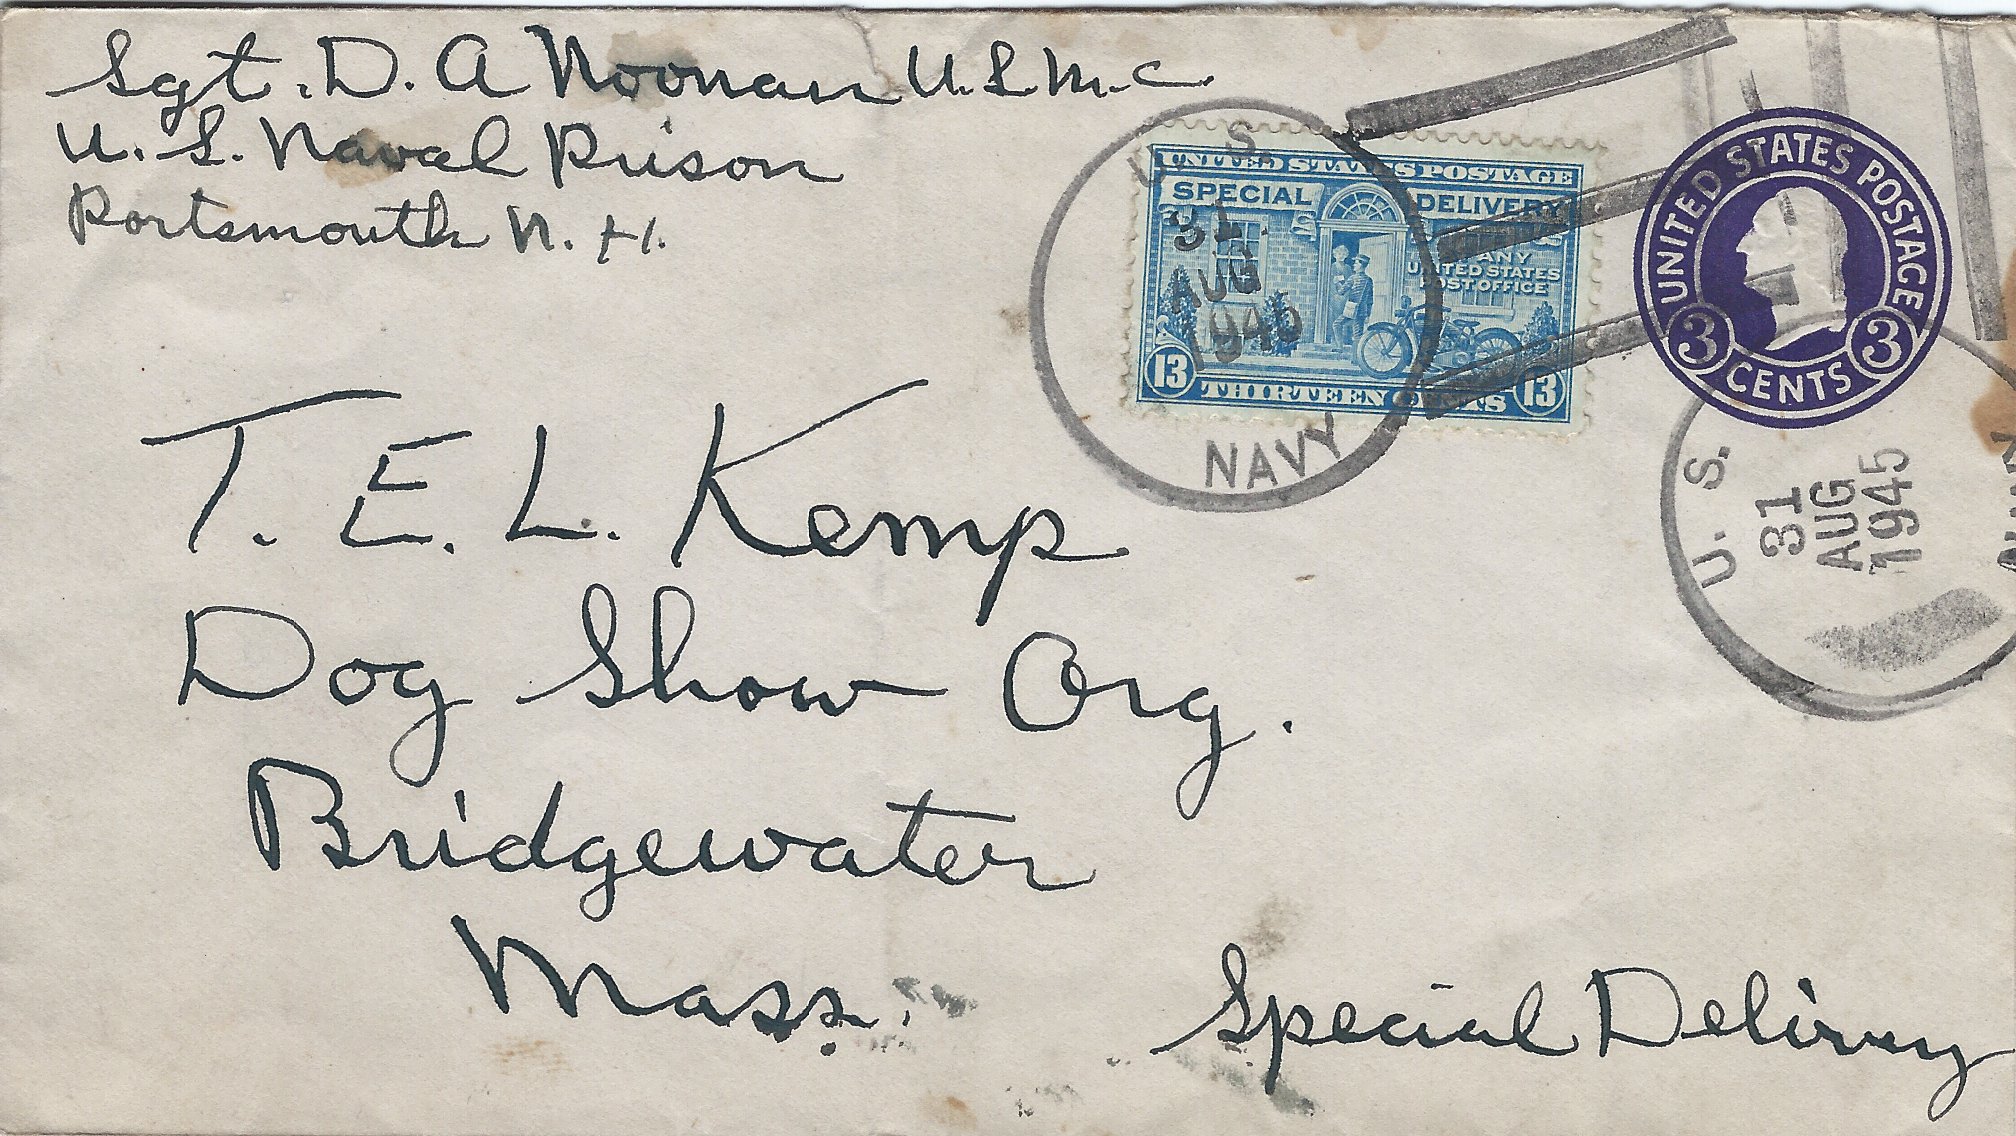 Sgt. D. A Noonan U.S.M.C
U. S. Naval Prison
Portsmouth N. H.
U S
31
AUG
1945
NAVY
UNITED STATES POSTAGE
SPECIAL DELIVERY
ANY
UNITED STATES
POST OFFICE
13 THIRTEEN CENTS 13
UNITED STATES POSTAGE
3 CENTS 3
U. S.
31
AUG
1945
T. E. L. Kemp
Dog Show Org.
Bridgewater
Mass.
Special Delivery